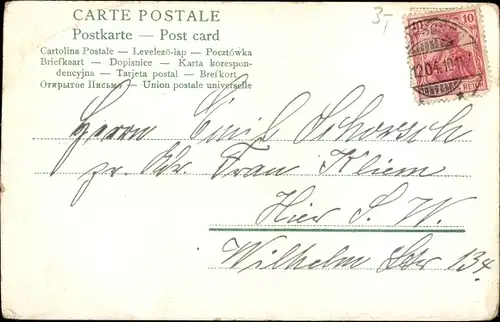 CARTE POSTALE
Postkarte — Post card
Cartolina Postale — Levelezö-lap — Pocztówka
Briefkaart — Dopisnice — Karta korespon-
dencyjna — Tarjeta postal — Brefkort
Открытое Письмо — Union postale universelle
3,-
10
12.04.10
REICH
Herrn Emil Schorsch
pr. Adr. Frau Kliem
Hier S. W.
Wilhelm Str 134